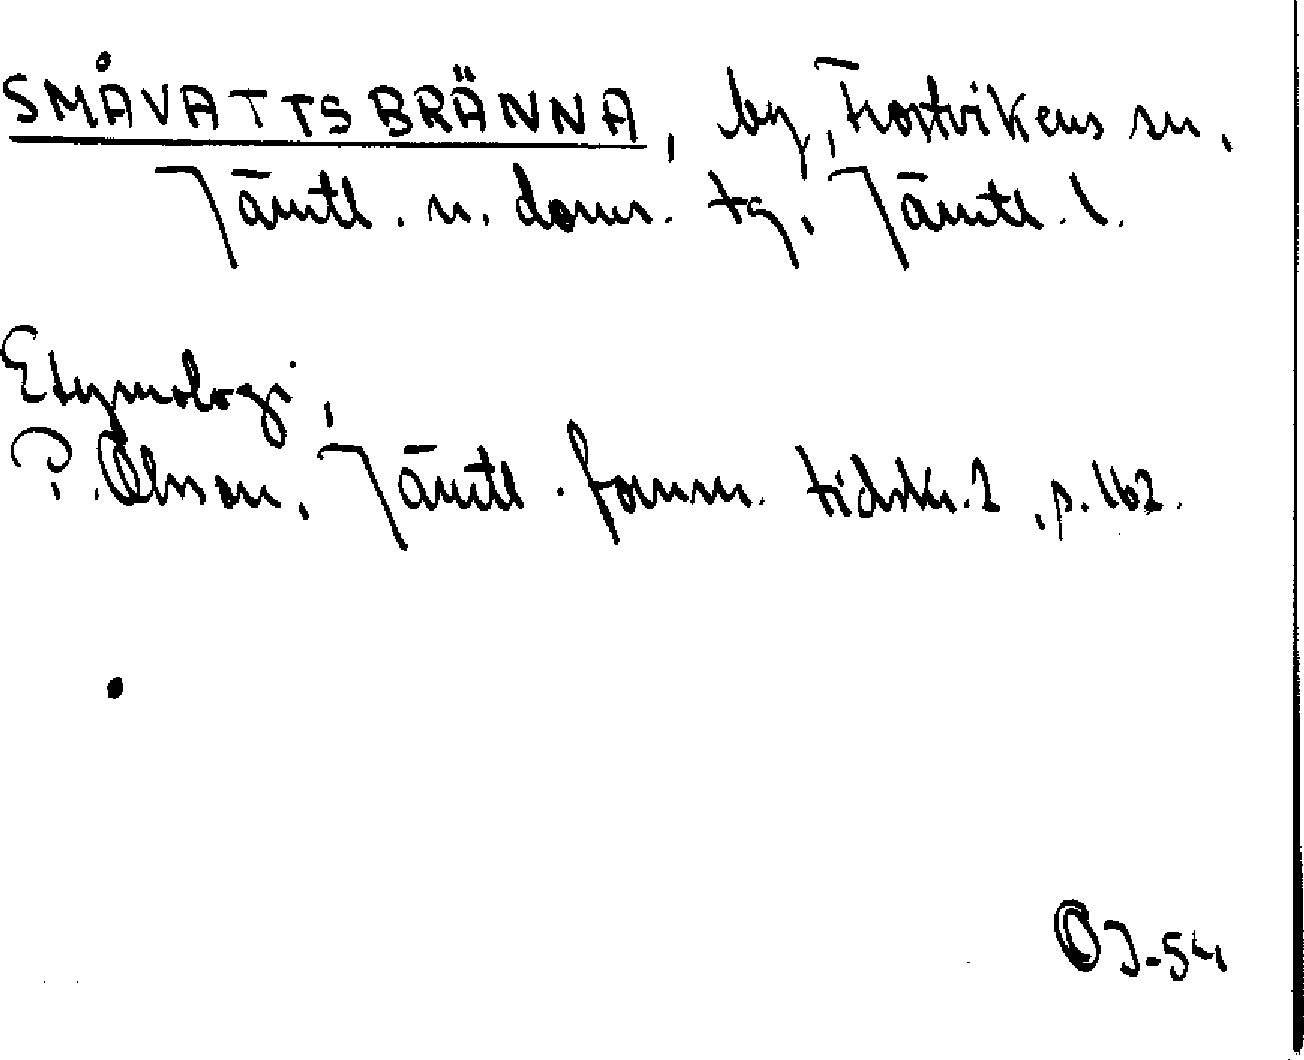 SMÅVATTSBRÄNNA, by, Trostvikens sn,
Jämtl. n. doms. tg, Jämtl. l.
Etymologi,
P. Olsson, Jämtl. fornm. tidskr. 2, p. 162.
OJ-54